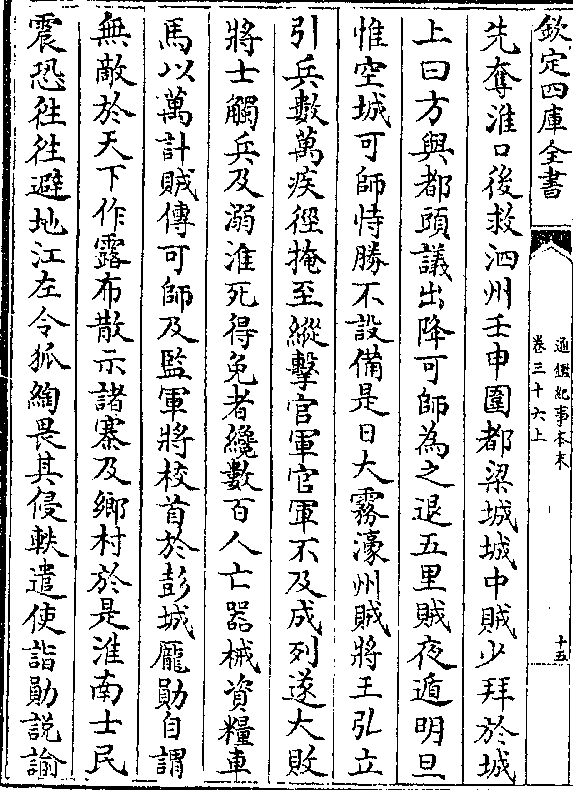 欽定四庫全書
通鑑紀事本末
卷三十六上
十五
先奪淮口後救泗州壬申圍都梁城城中賊少拜於城
上曰方與都頭議出降可師為之退五里賊夜遁明旦
惟空城可師恃勝不設備是日大霧濠州賊將王弘立
引兵數萬疾徑掩至縱擊官軍官軍不及成列遂大敗
將士觸兵及溺淮死得免者纔數百人亡器械資糧車
馬以萬計賊傳可師及監軍將校首於彭城龐勛自謂
無敵於天下作露布散示諸寨及鄉村於是淮南士民
震恐往往避地江左令狐綯畏其侵軼遣使詣勛說諭